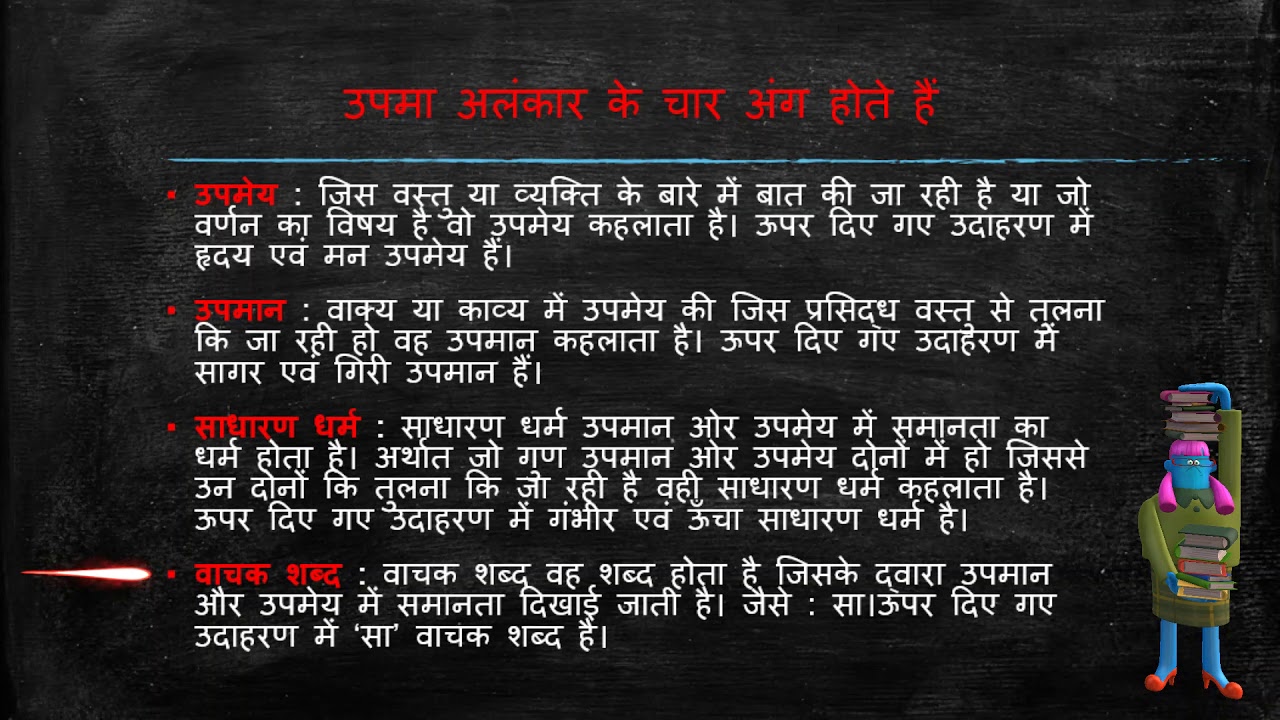 उपमा अलंकार के चार अंग होते हैं
▪ उपमेय : जिस वस्तु या व्यक्ति के बारे में बात की जा रही है या जो
वर्णन का विषय है वो उपमेय कहलाता है। ऊपर दिए गए उदाहरण में
हृदय एवं मन उपमेय हैं।
▪ उपमान : वाक्य या काव्य में उपमेय की जिस प्रसिद्ध वस्तु से तुलना
कि जा रही हो वह उपमान कहलाता है। ऊपर दिए गए उदाहरण में
सागर एवं गिरी उपमान हैं।
▪ साधारण धर्म : साधारण धर्म उपमान ओर उपमेय में समानता का
धर्म होता है। अर्थात जो गुण उपमान ओर उपमेय दोनों में हो जिससे
उन दोनों कि तुलना कि जा रही है वही साधारण धर्म कहलाता है।
ऊपर दिए गए उदाहरण में गंभीर एवं ऊँचा साधारण धर्म है।
▪ वाचक शब्द : वाचक शब्द वह शब्द होता है जिसके द्वारा उपमान
और उपमेय में समानता दिखाई जाती है। जैसे : सा।ऊपर दिए गए
उदाहरण में ‘सा’ वाचक शब्द है।